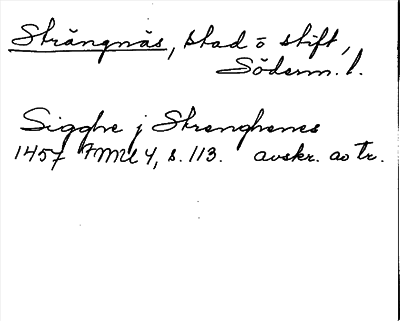 Strängnäs, stad o stift,
Söderm. l.
Sigghe j Strenghenes
1457 FMU 4, s. 113. avskr. av tr.